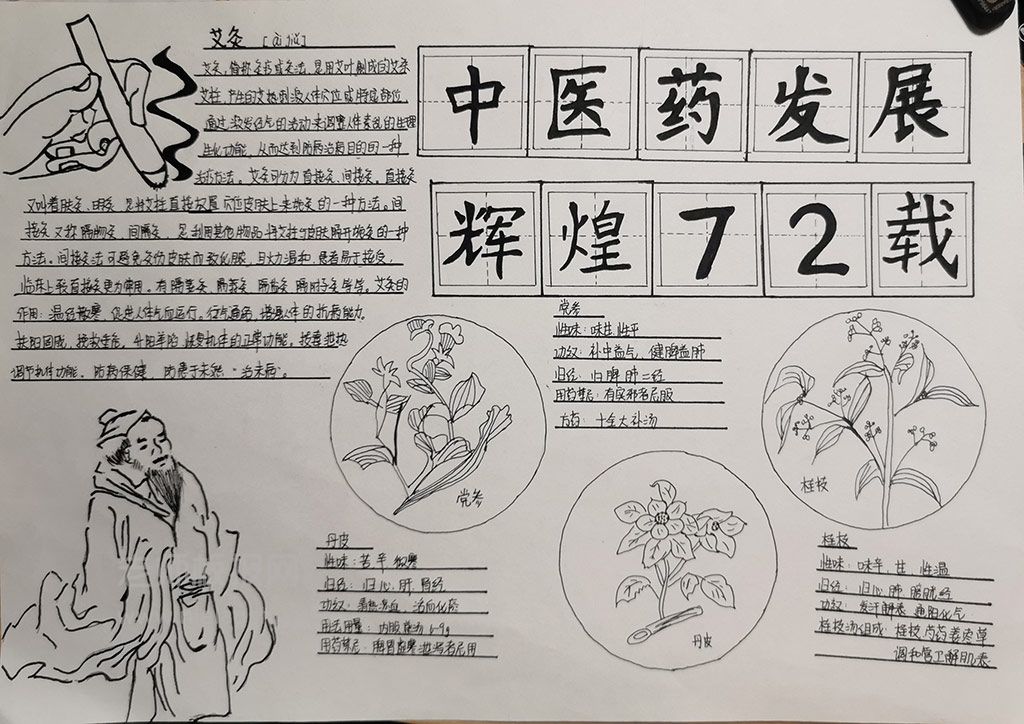 艾灸 [ài jiǔ]
艾灸，俗称灸疗或灸法，是用艾叶制成的艾条
艾柱，产生的艾热刺激人体穴位或特定部位，
通过激发经气的活动来调整人体紊乱的生理
生化功能，从而达到防病治病目的的一种
治疗方法。艾灸可分为直接灸、间接灸。直接灸
又叫着肤灸、明灸，是将艾柱直接放置穴位皮肤上来施灸的一种方法。间
接灸又称隔物灸、间隔灸，是利用其他物品将艾柱与皮肤隔开施灸的一种
方法。间接灸法可避免灸伤皮肤而致化脓，且火力温和，患者易于接受，
临床上较直接灸更为使用。有隔姜灸、隔蒜灸、隔盐灸、隔附子灸等等。艾灸的
作用：温经散寒，促进人体气血运行，行气通络，增强人体的抗病能力
扶阳固脱，补阳恢复机体的正常功能
调节机体功能、防病保健，防患于未然“治未病”。
中医药发展
辉煌72载
党参
性味：味甘 性平
功效：补中益气，健脾益肺
归经：归脾 肺二经
用药禁忌：有实邪者忌服
方药：十全大补汤
党参
桂枝
丹皮
丹皮
性味：苦 辛 微寒
归经：归心、肝、肾经
功效：清热凉血 活血化瘀
用法用量：内服 煎汤 6-9g
用药禁忌：脾胃虚寒泄泻者忌用
桂枝
性味：味辛、甘 性温
归经：归心 肺 膀胱经
功效：发汗解表 通阳化气
桂枝汤组成：桂枝芍药姜枣草
调和营卫解肌表